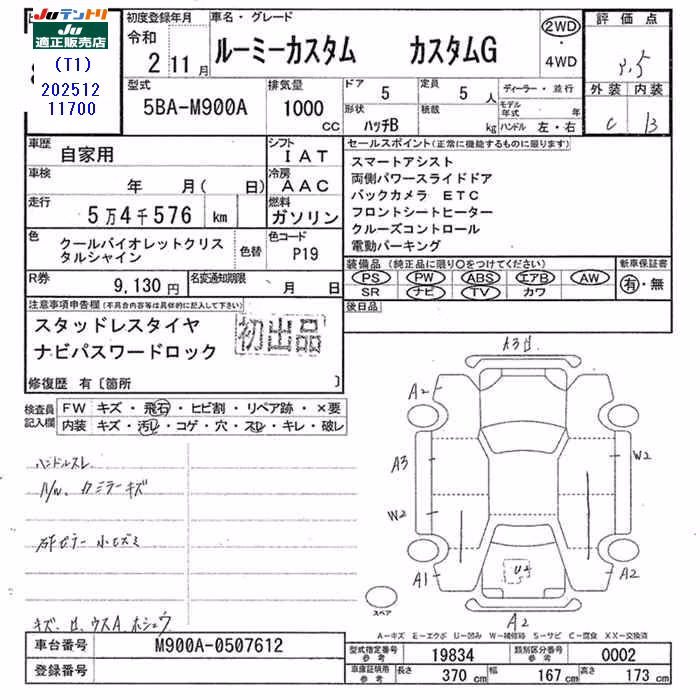 JU JUテントリ
JU適正販売店
(T1)
202512
11700
初度登録年月
令和
2年11月
車名・グレード
ルーミーカスタム カスタムG
2WD
・
4WD
評価点
3.5
外装 内装
C B
型式
5BA-M900A
排気量
1000
cc
ドア
5
定員
5人
形状
ハッチB
積載
kg
ディーラー・並行
モデル年式 年
ハンドル 左・右
車歴
自家用
シフト
IAT
車検
年 月( 日)
冷房
AAC
走行
5万4千576 km
燃料
ガソリン
色
クールバイオレットクリスタルシャイン
色替
色コード
P19
R券
9,130円
名変通知期限
月 日
セールスポイント(正常に機能するものに限ります)
スマートアシスト
両側パワースライドドア
バックカメラ ETC
フロントシートヒーター
クルーズコントロール
電動パーキング
装備品(純正品に限り○をつけてください)
PS PW ABS エアB AW
SR ナビ TV カワ
新車保証書
有・無
後日品
注意事項申告欄(不具合内容等は具体的に記入して下さい)
スタッドレスタイヤ
ナビパスワードロック
初出品
修復歴 有〔箇所 〕
検査員記入欄
FW キズ・飛石・ヒビ割・リペア跡・×要
内装 キズ・汚レ・コゲ・穴・スレ・キレ・破レ
ハンドルスレ
A/W、カミラーキズ
小キズミ
キズ、凹、ウスA、ホシュウ
A3
A2
A3
W2
W2
A1
A2
A2
スペア
A-キズ E-エクボ U-凹み W-補修跡 S-サビ C-腐食 XX-交換済
車台番号
M900A-0507612
登録番号
型式指定番号 参考
19834
類別区分番号 参考
0002
車庫証明用 参考
長さ 370 cm
幅 167 cm
高さ 173 cm